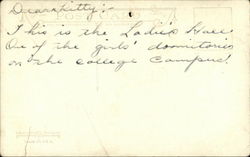 Dear Kitty:-
This is the Ladies Hall
One of the girls' dormitories
on the college campus.
POST CARD